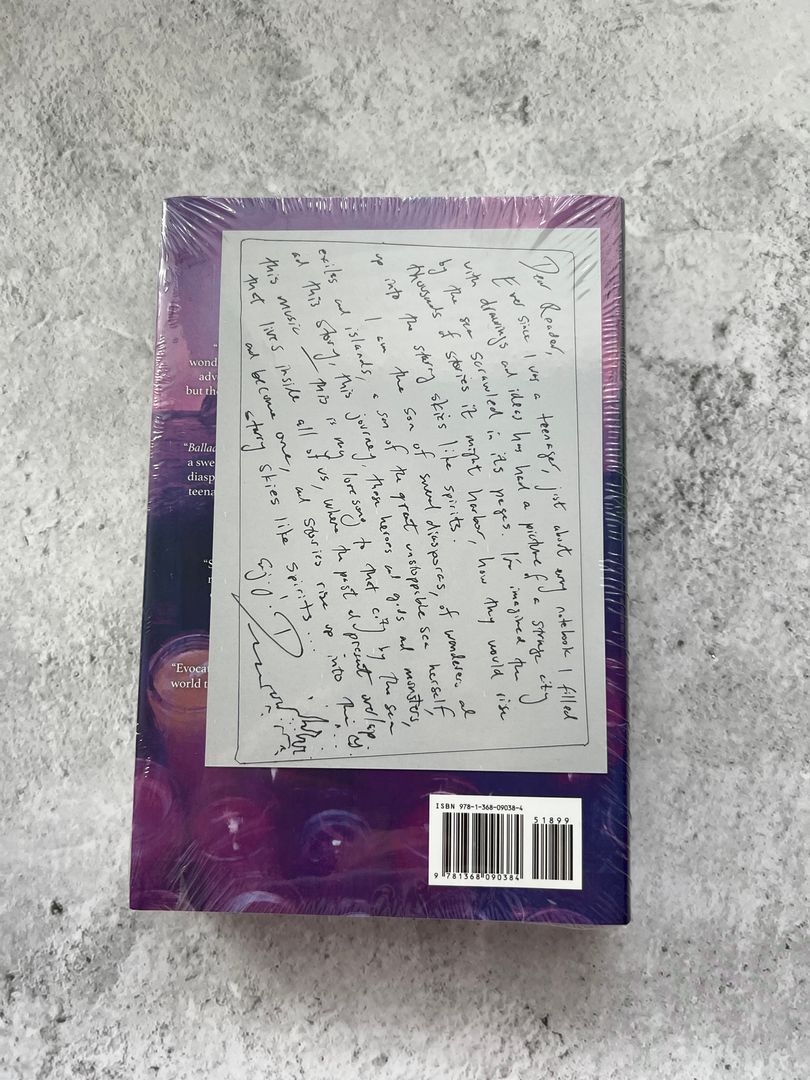 Dear Reader,
Ever since I was a teenager, just about every notebook I filled
with drawings and ideas has had a picture of a strange city
by the sea scrawled in its pages. I've imagined the
thousands of stories it might harbor, how they would rise
up into the starry skies like spirits.
I am the son of several diasporas, of wanderers and
exiles and islands, a son of the great unstoppable sea herself,
and this story, this journey, these heroes and gods and monsters,
this music — this is my lovesong to that city by the sea
that lives inside all of us, where the past and present overlap
and become one, and stories rise up into the
starry skies like spirits...
wond
adv
but the
“Ballad
a swe
diasp
teena
“S
“Evocat
world t
ISBN 978-1-368-09038-4
51899
9 781368 090384